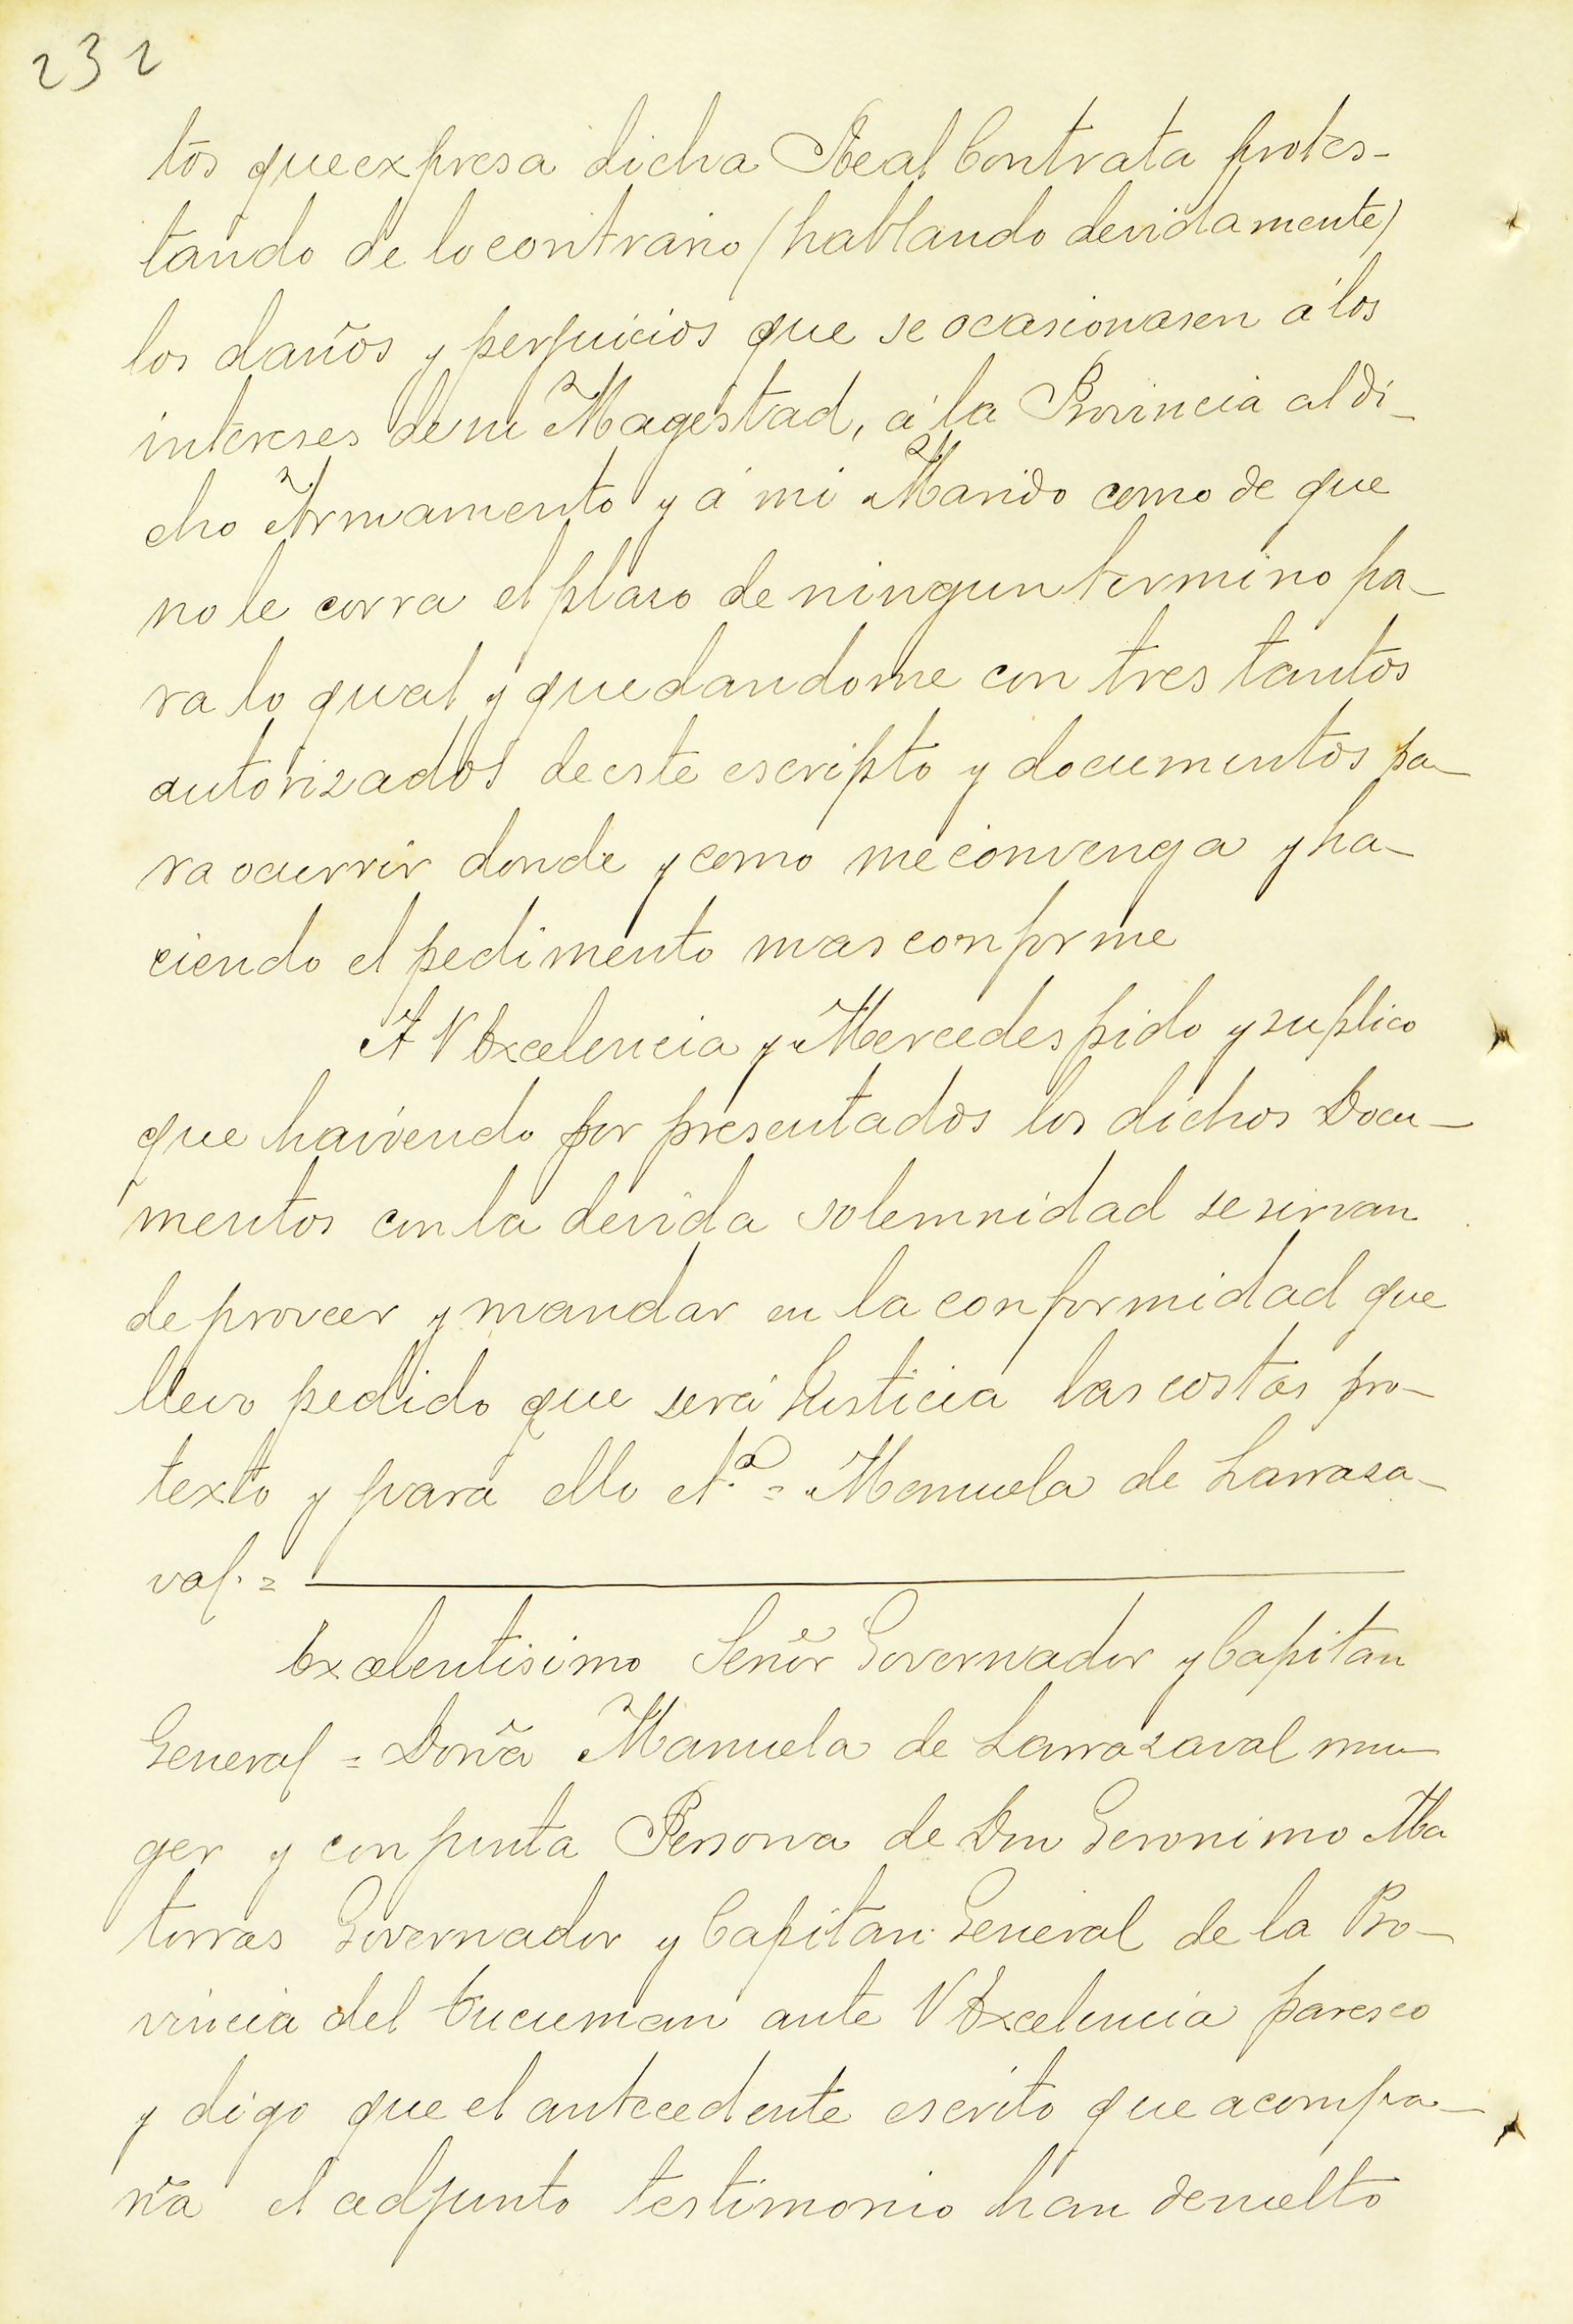 232
tos que expresa dicha Real Contrata protes-
tando de lo contrario (hablando devidamente)
los daños y perjuicios que se ocasionasen á los
intereses de su Magestad, á la Provincia al di-
cho Armamento y á mi Marido como de que
no le corra el plaso de ningun termino pa-
ra lo qual y quedandome con tres tantos
autorizados de este escripto y documentos pa-
ra ocurrir donde y como me convenga y ha-
ciendo el pedimento mas conforme
A V Excelencia y Mercedes pido y suplico
que haviendo por presentados los dichos Docu-
mentos con la devida solemnidad se sirvan
de proveer y mandar en la conformidad que
llevo pedido que será Justicia las costas pro-
texto y para ello etª = Manuela de Larrasa-
val. =
Excelentisimo Señor Governador y Capitan
General = Doña Manuela de Larrazaval mu-
ger y conjunta Persona de Don Geronimo Ma
torras Governador y Capitan General de la Pro-
vincia del Tucuman ante V Excelencia paresco
y digo que el antecedente escrito que acompa-
ña el adjunto testimonio han devuelto